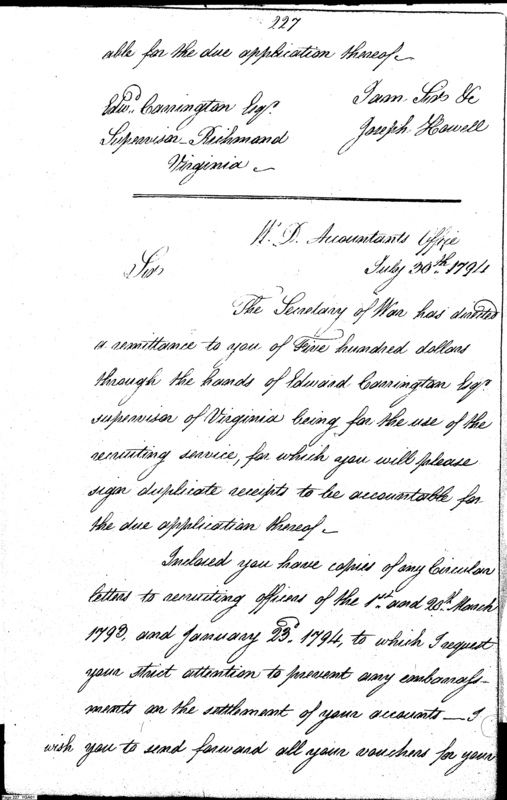 227
able for the due application thereof
Edwd. Carrington Esqr.
Supervisor Richmond
Virginia
I am Sir &c
Joseph Howell
W. D. Accountants Office
July 30th. 1794
Sir
The Secretary of War has directed
a remittance to you of Five hundred dollars
through the hands of Edward Carrington Esqr.
supervisor of Virginia being for the use of the
recruiting service, for which you will please
sign duplicate receipts to be accountable for
the due application thereof
Inclosed you have copies of my Circular
letters to recruiting officers of the 1st. and 28th. March
1793, and January 23d. 1794, to which I request
your strict attention to prevent any embarrass-
ments on the settlement of your accounts — I
wish you to send forward all your vouchers for your